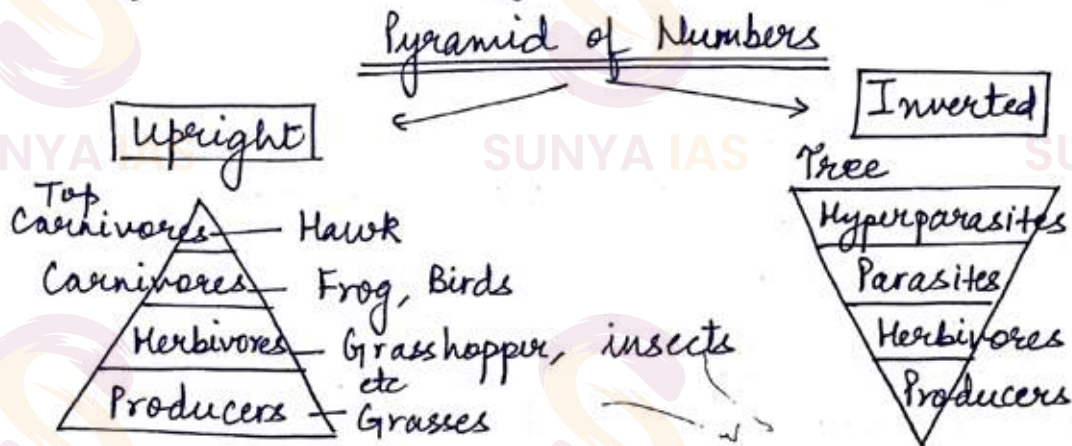 Pyramid of Numbers
Upright
Inverted
Top
Carnivores — Hawk
Carnivores — Frog, Birds
Herbivores — Grasshopper, insects
etc
Producers — Grasses
Tree
Hyperparasites
Parasites
Herbivores
Producers
NYA IAS
SUNYA IAS
SU